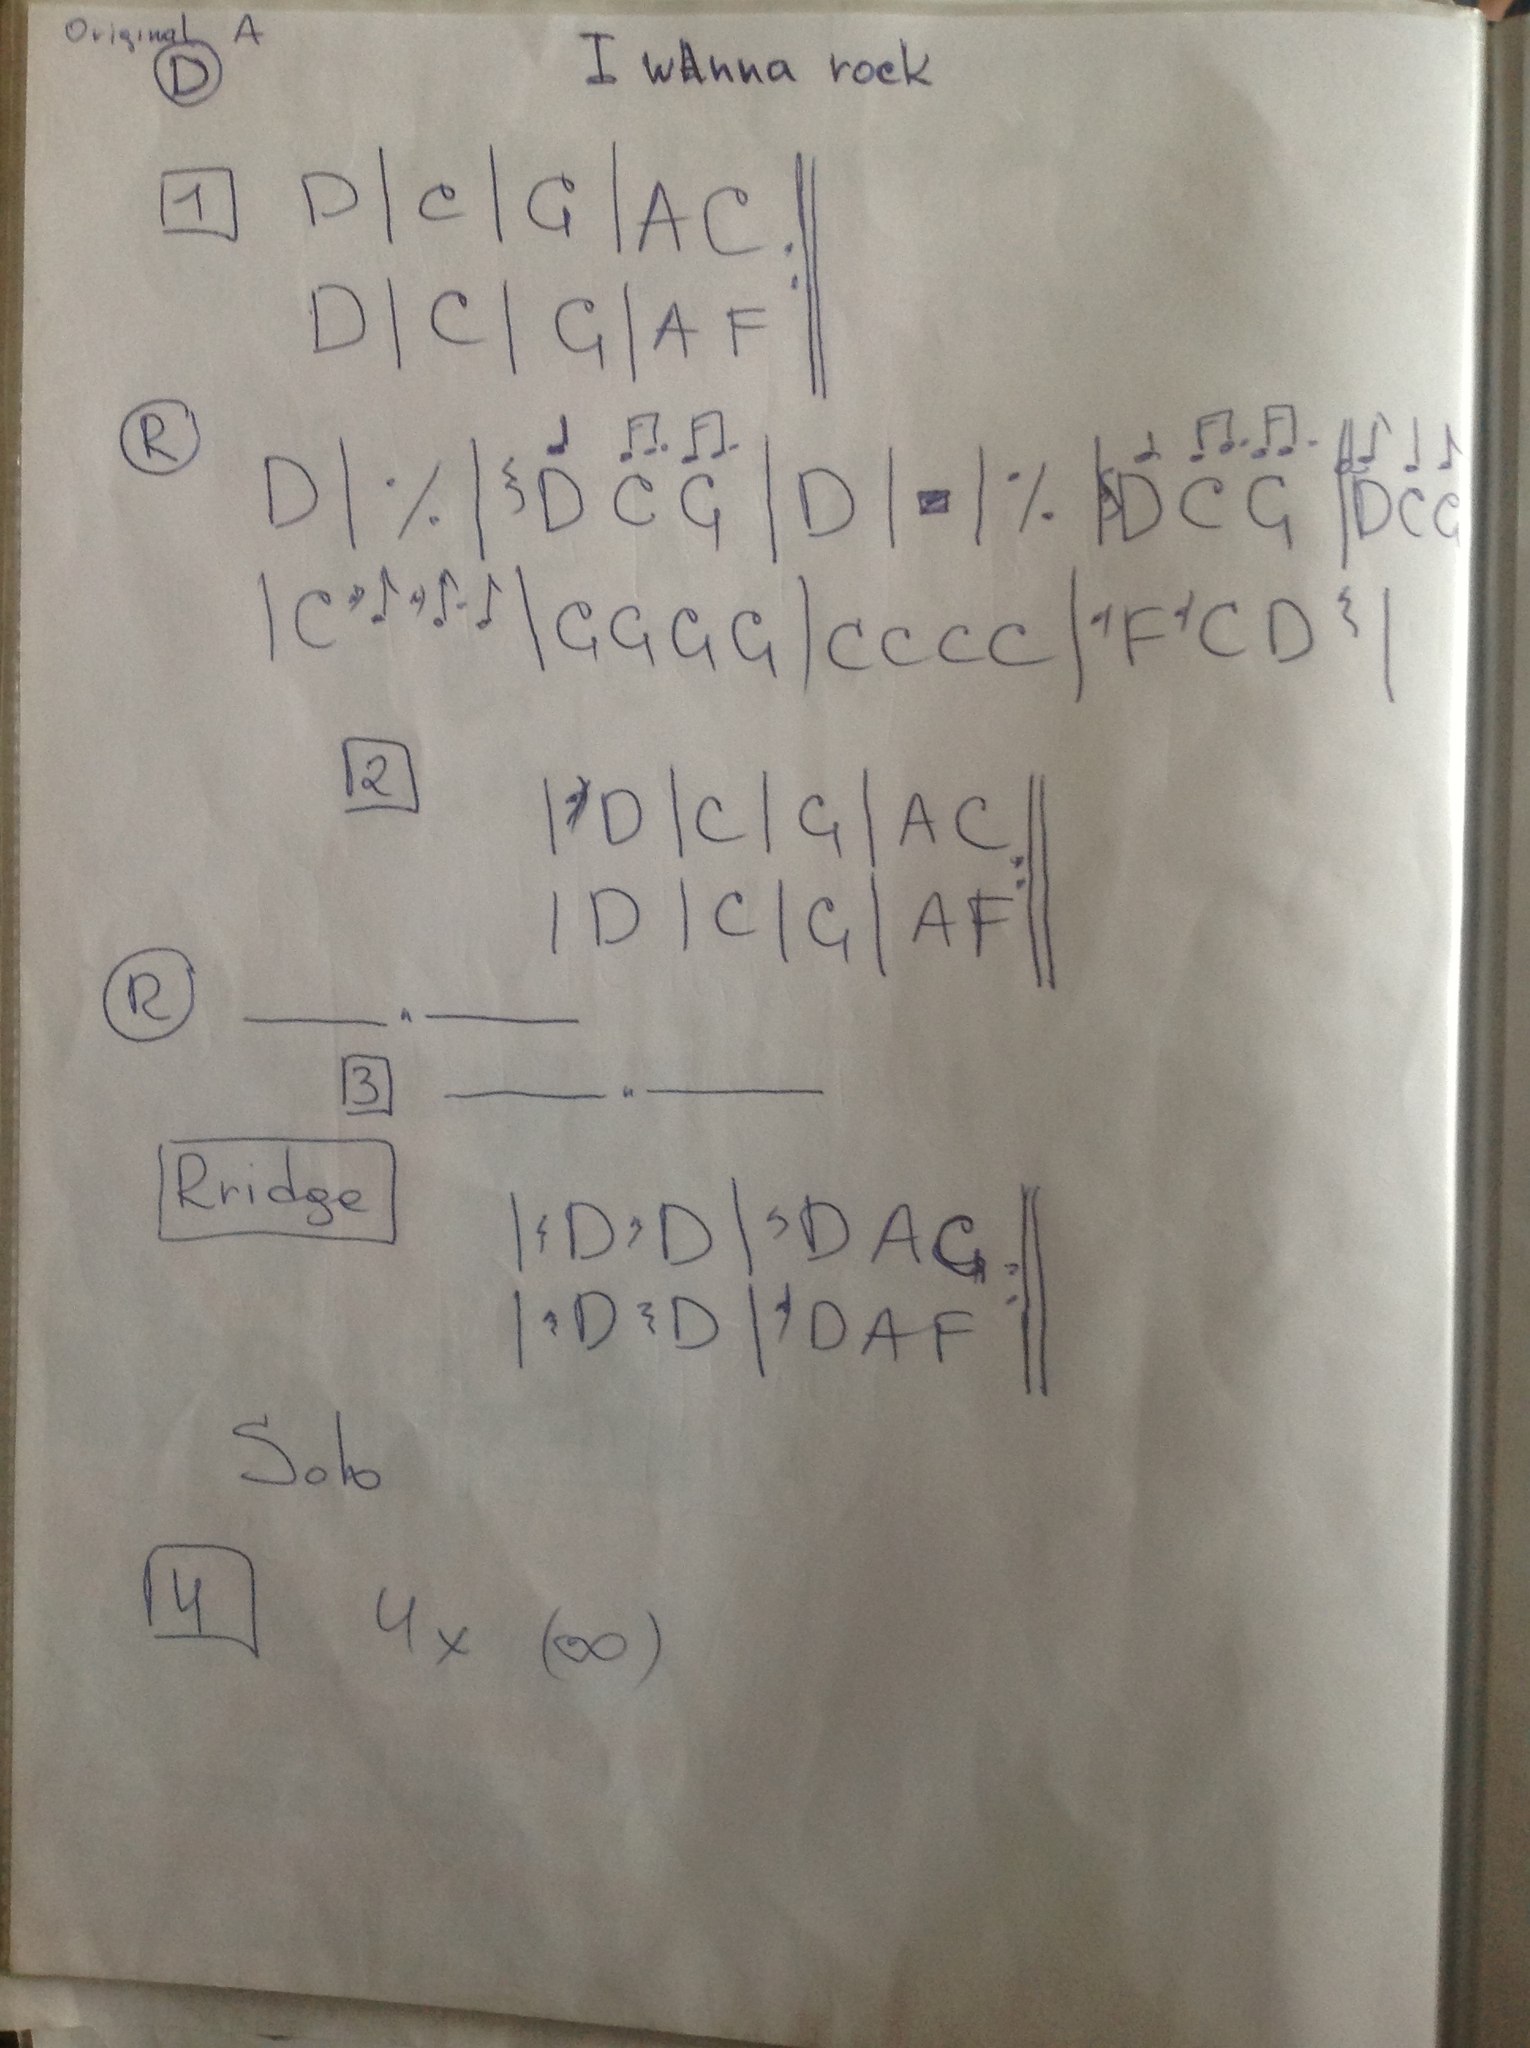 Original A
D
I wAnna rock
1 D | C | G | A C :||
D | C | G | A F
R
D | ٪ | D C G | D | - | ٪ | D C G | D C G
| C | G G G G | C C C C | F C D |
2 | D | C | G | A C :||
| D | C | G | A F
R ——— " ———
3 ——— " ———
Rridge | D D | D A G :||
| D D | D A F
Solo
4 4x (∞)